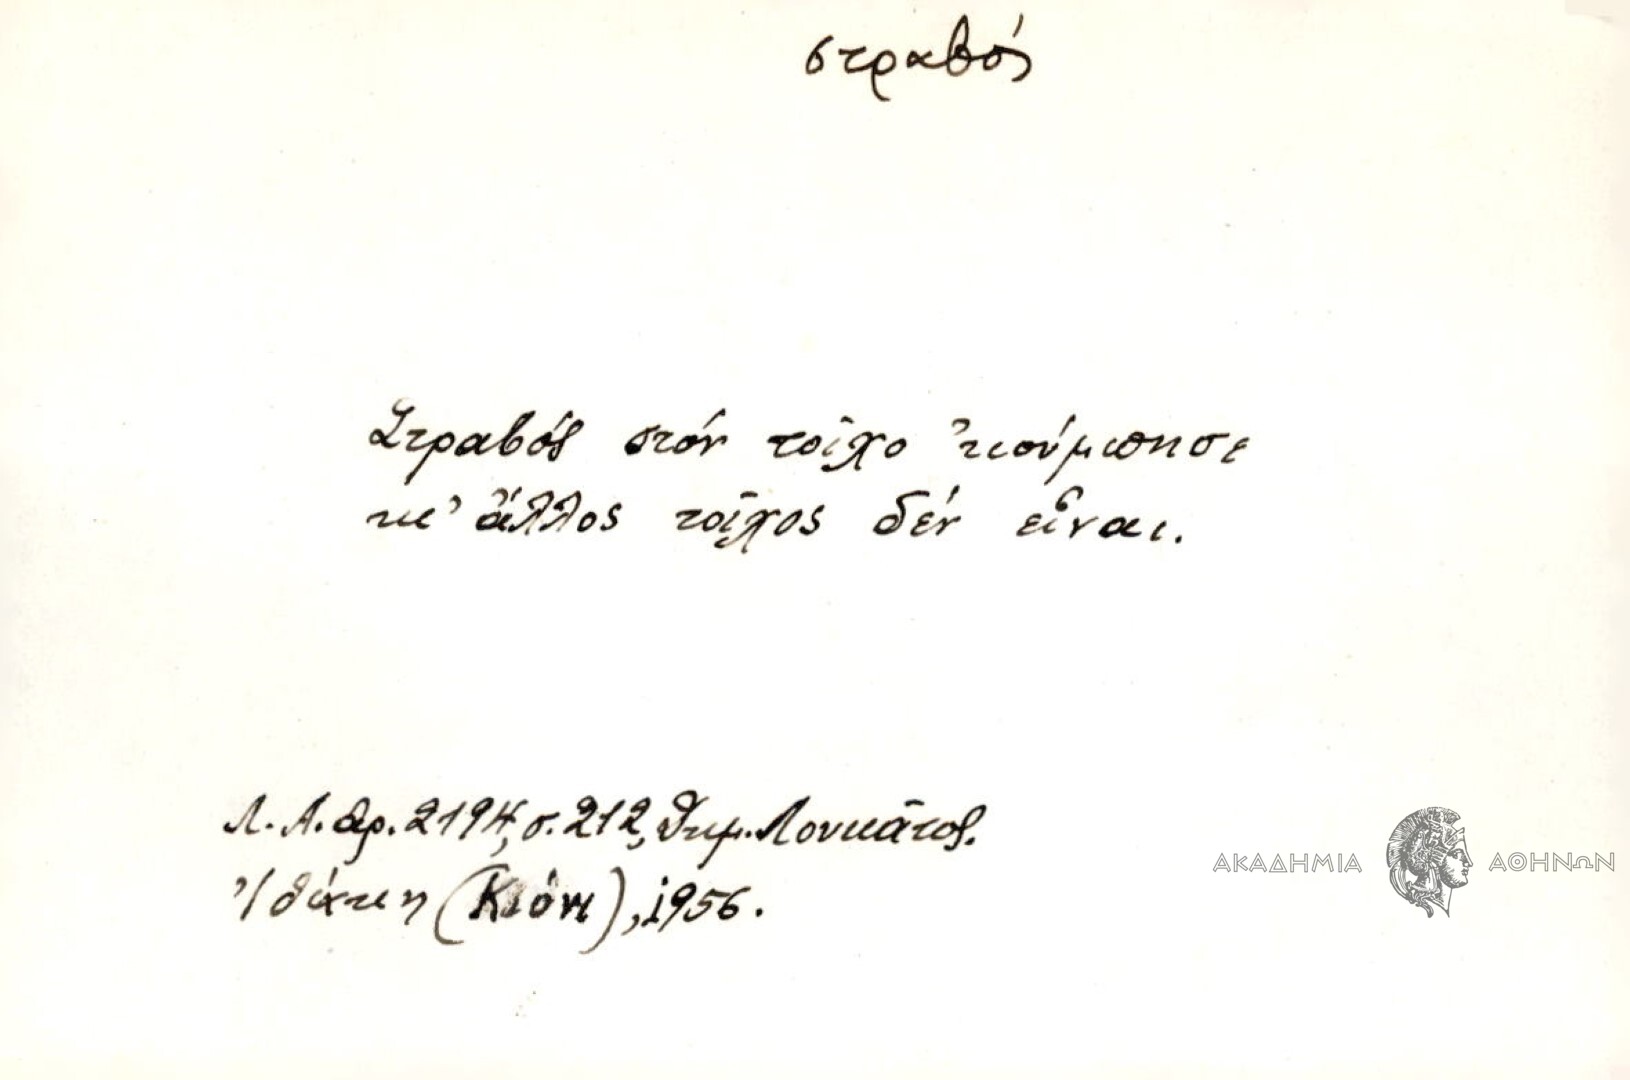 στραβός
Στραβός στόν τοῖχο ἀκούμπησε
κι' ἄλλος τοῖχος δέν εἶναι.
Λ. Α. ἀρ. 2194, σ. 212, Δημ. Λουκᾶτος.
Ἰθάκη (Κιόνι), 1956.
ΑΚΑΔΗΜΙΑ ΑΘΗΝΩΝ